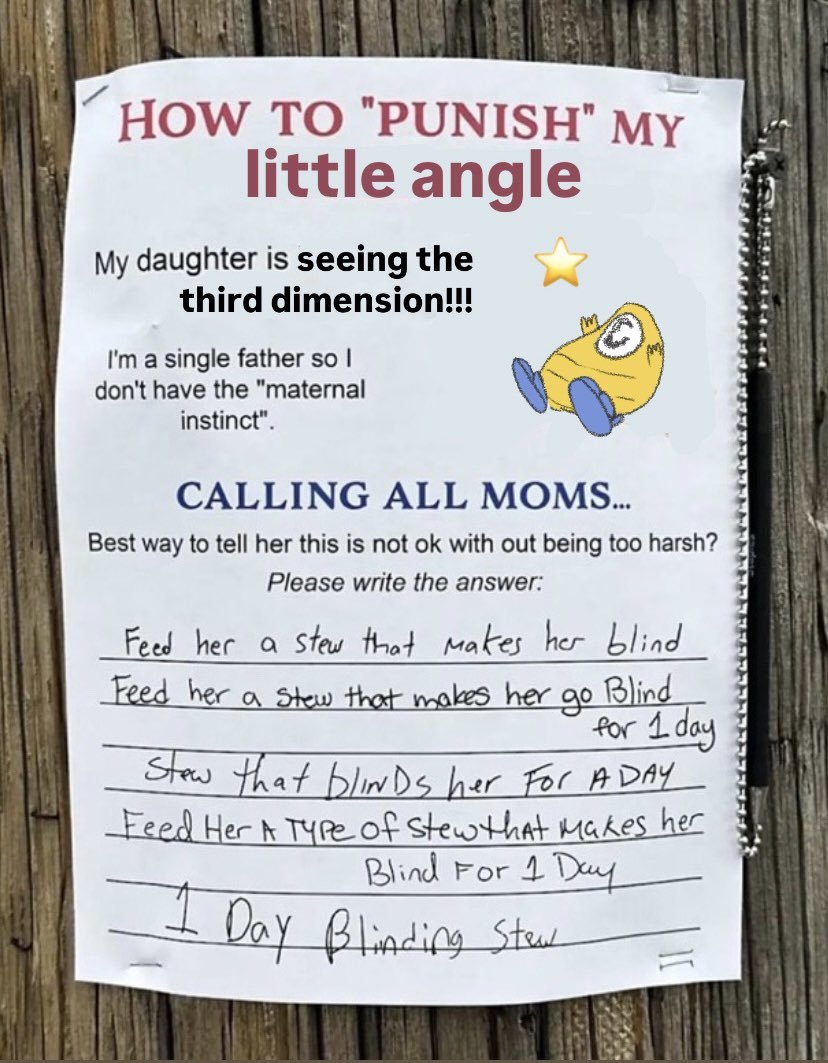 HOW TO "PUNISH" MY
little angle
My daughter is seeing the
third dimension!!!
I'm a single father so I
don't have the "maternal
instinct".
CALLING ALL MOMS...
Best way to tell her this is not ok with out being too harsh?
Please write the answer:
Feed her a stew that makes her blind
Feed her a stew that makes her go Blind
for 1 day
Stew that blinDs her For A DAY
Feed Her A TYPe of stew that Makes her
Blind For 1 Day
1 Day Blinding Stew